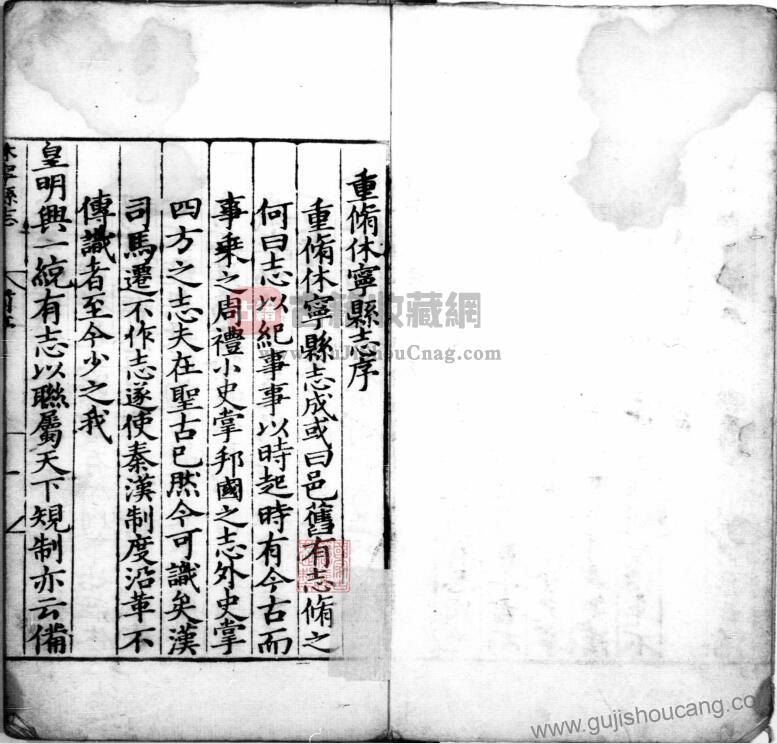 重脩休寧縣志序
重脩休寧縣志成或曰邑舊有志脩之
何曰志以紀事事以時起時有今古而
事乗之周禮小史掌邦國之志外史掌
四方之志夫在聖古已然今可識矣漢
司馬遷不作志遂使秦漢制度沿革不
傳識者至今少之我
皇明興一統有志以聮屬天下規制亦云備
休寧縣志
古籍收藏網
www.GuJiShouCnag.com
www.gujishoucang.co